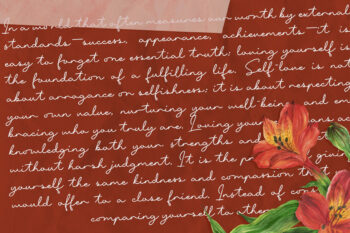 In a world that often measures our worth by external
standards—success, appearance, achievements—it is
easy to forget one essential truth: loving yourself is
the foundation of a fulfilling life. Self-love is not
about arrogance or selfishness; it is about respecting
your own value, nurturing your well-being, and em
bracing who you truly are. Loving yourself
knowledging both your strengths and
without harsh judgment. It is the
yourself the same kindness and compassion that
would offer to a close friend. Instead of
comparing yourself to